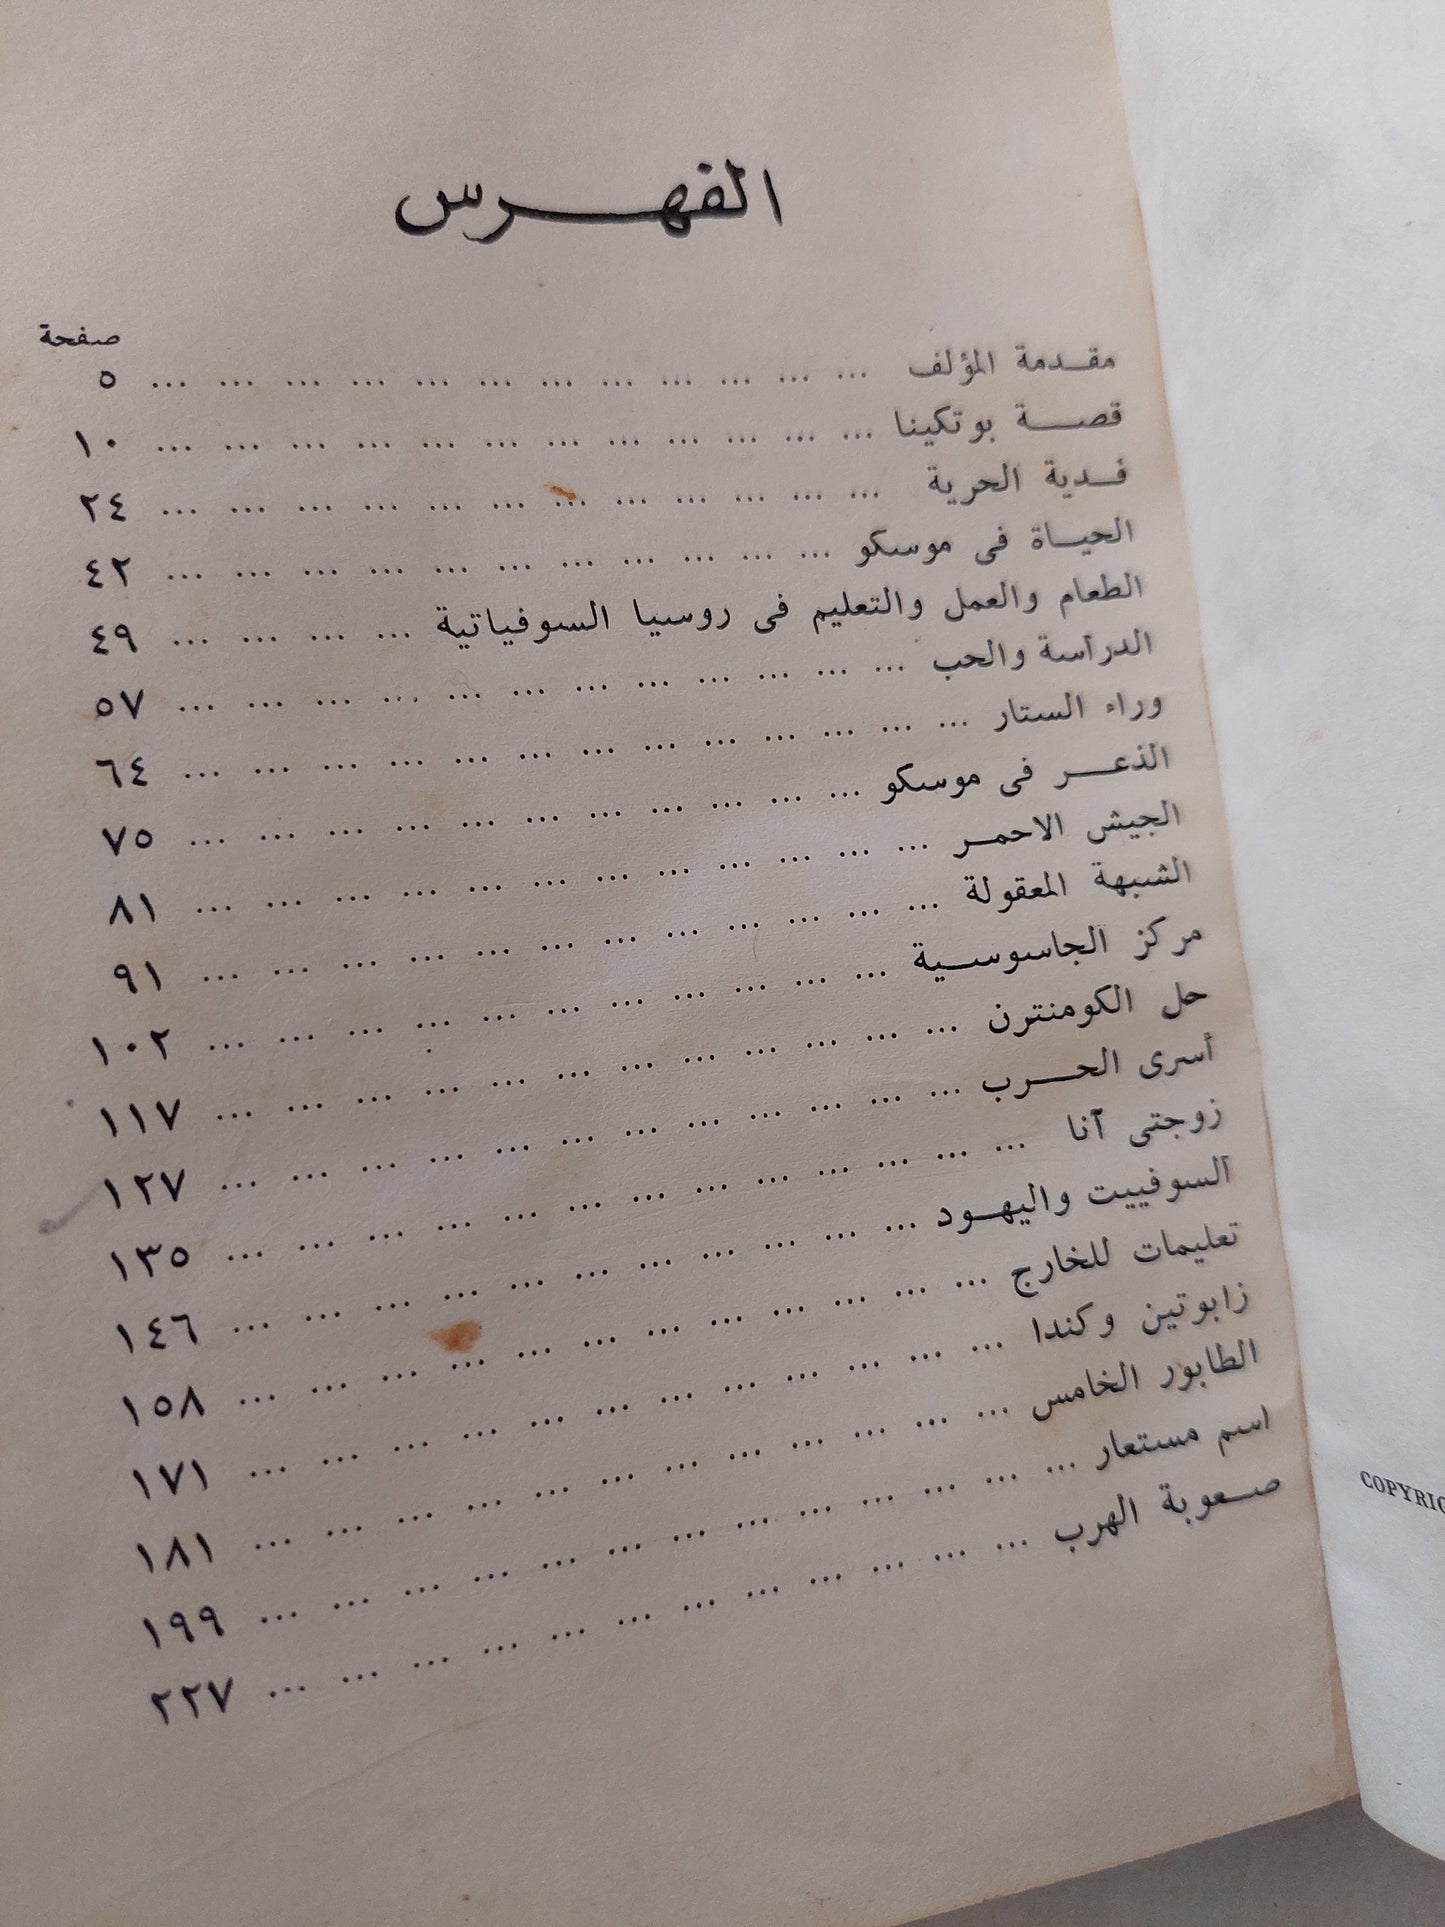 الفهرس
صفحة
مقدمة المؤلف ... ... ... ... ... ... ... ... ... ... ... ... ٥
قصة بوتكينا ... ... ... ... ... ... ... ... ... ... ... ... ١٠
فدية الحرية ... ... ... ... ... ... ... ... ... ... ... ... ٢٤
الحياة فى موسكو ... ... ... ... ... ... ... ... ... ... ... ٤٢
الطعام والعمل والتعليم فى روسيا السوفياتية ... ... ... ... ٤٩
الدراسة والحب ... ... ... ... ... ... ... ... ... ... ... ... ٥٧
وراء الستار ... ... ... ... ... ... ... ... ... ... ... ... ... ٦٤
الذعر فى موسكو ... ... ... ... ... ... ... ... ... ... ... ٧٥
الجيش الاحمر ... ... ... ... ... ... ... ... ... ... ... ... ٨١
الشبهة المعقولة ... ... ... ... ... ... ... ... ... ... ... ... ٩١
مركز الجاسوسية ... ... ... ... ... ... ... ... ... ... ... ١٠٢
حل الكومنترن ... ... ... ... ... ... ... ... ... ... ... ... ١١٧
أسرى الحرب ... ... ... ... ... ... ... ... ... ... ... ... ١٢٧
زوجتى آنا ... ... ... ... ... ... ... ... ... ... ... ... ... ١٣٥
السوفييت واليهود ... ... ... ... ... ... ... ... ... ... ... ١٤٦
تعليمات للخارج ... ... ... ... ... ... ... ... ... ... ... ... ١٥٨
زابوتين وكندا ... ... ... ... ... ... ... ... ... ... ... ... ١٧١
الطابور الخامس ... ... ... ... ... ... ... ... ... ... ... ... ١٨١
اسم مستعار ... ... ... ... ... ... ... ... ... ... ... ... ... ١٩٩
صعوبة الهرب ... ... ... ... ... ... ... ... ... ... ... ... ٢٢٧
COPYRIG